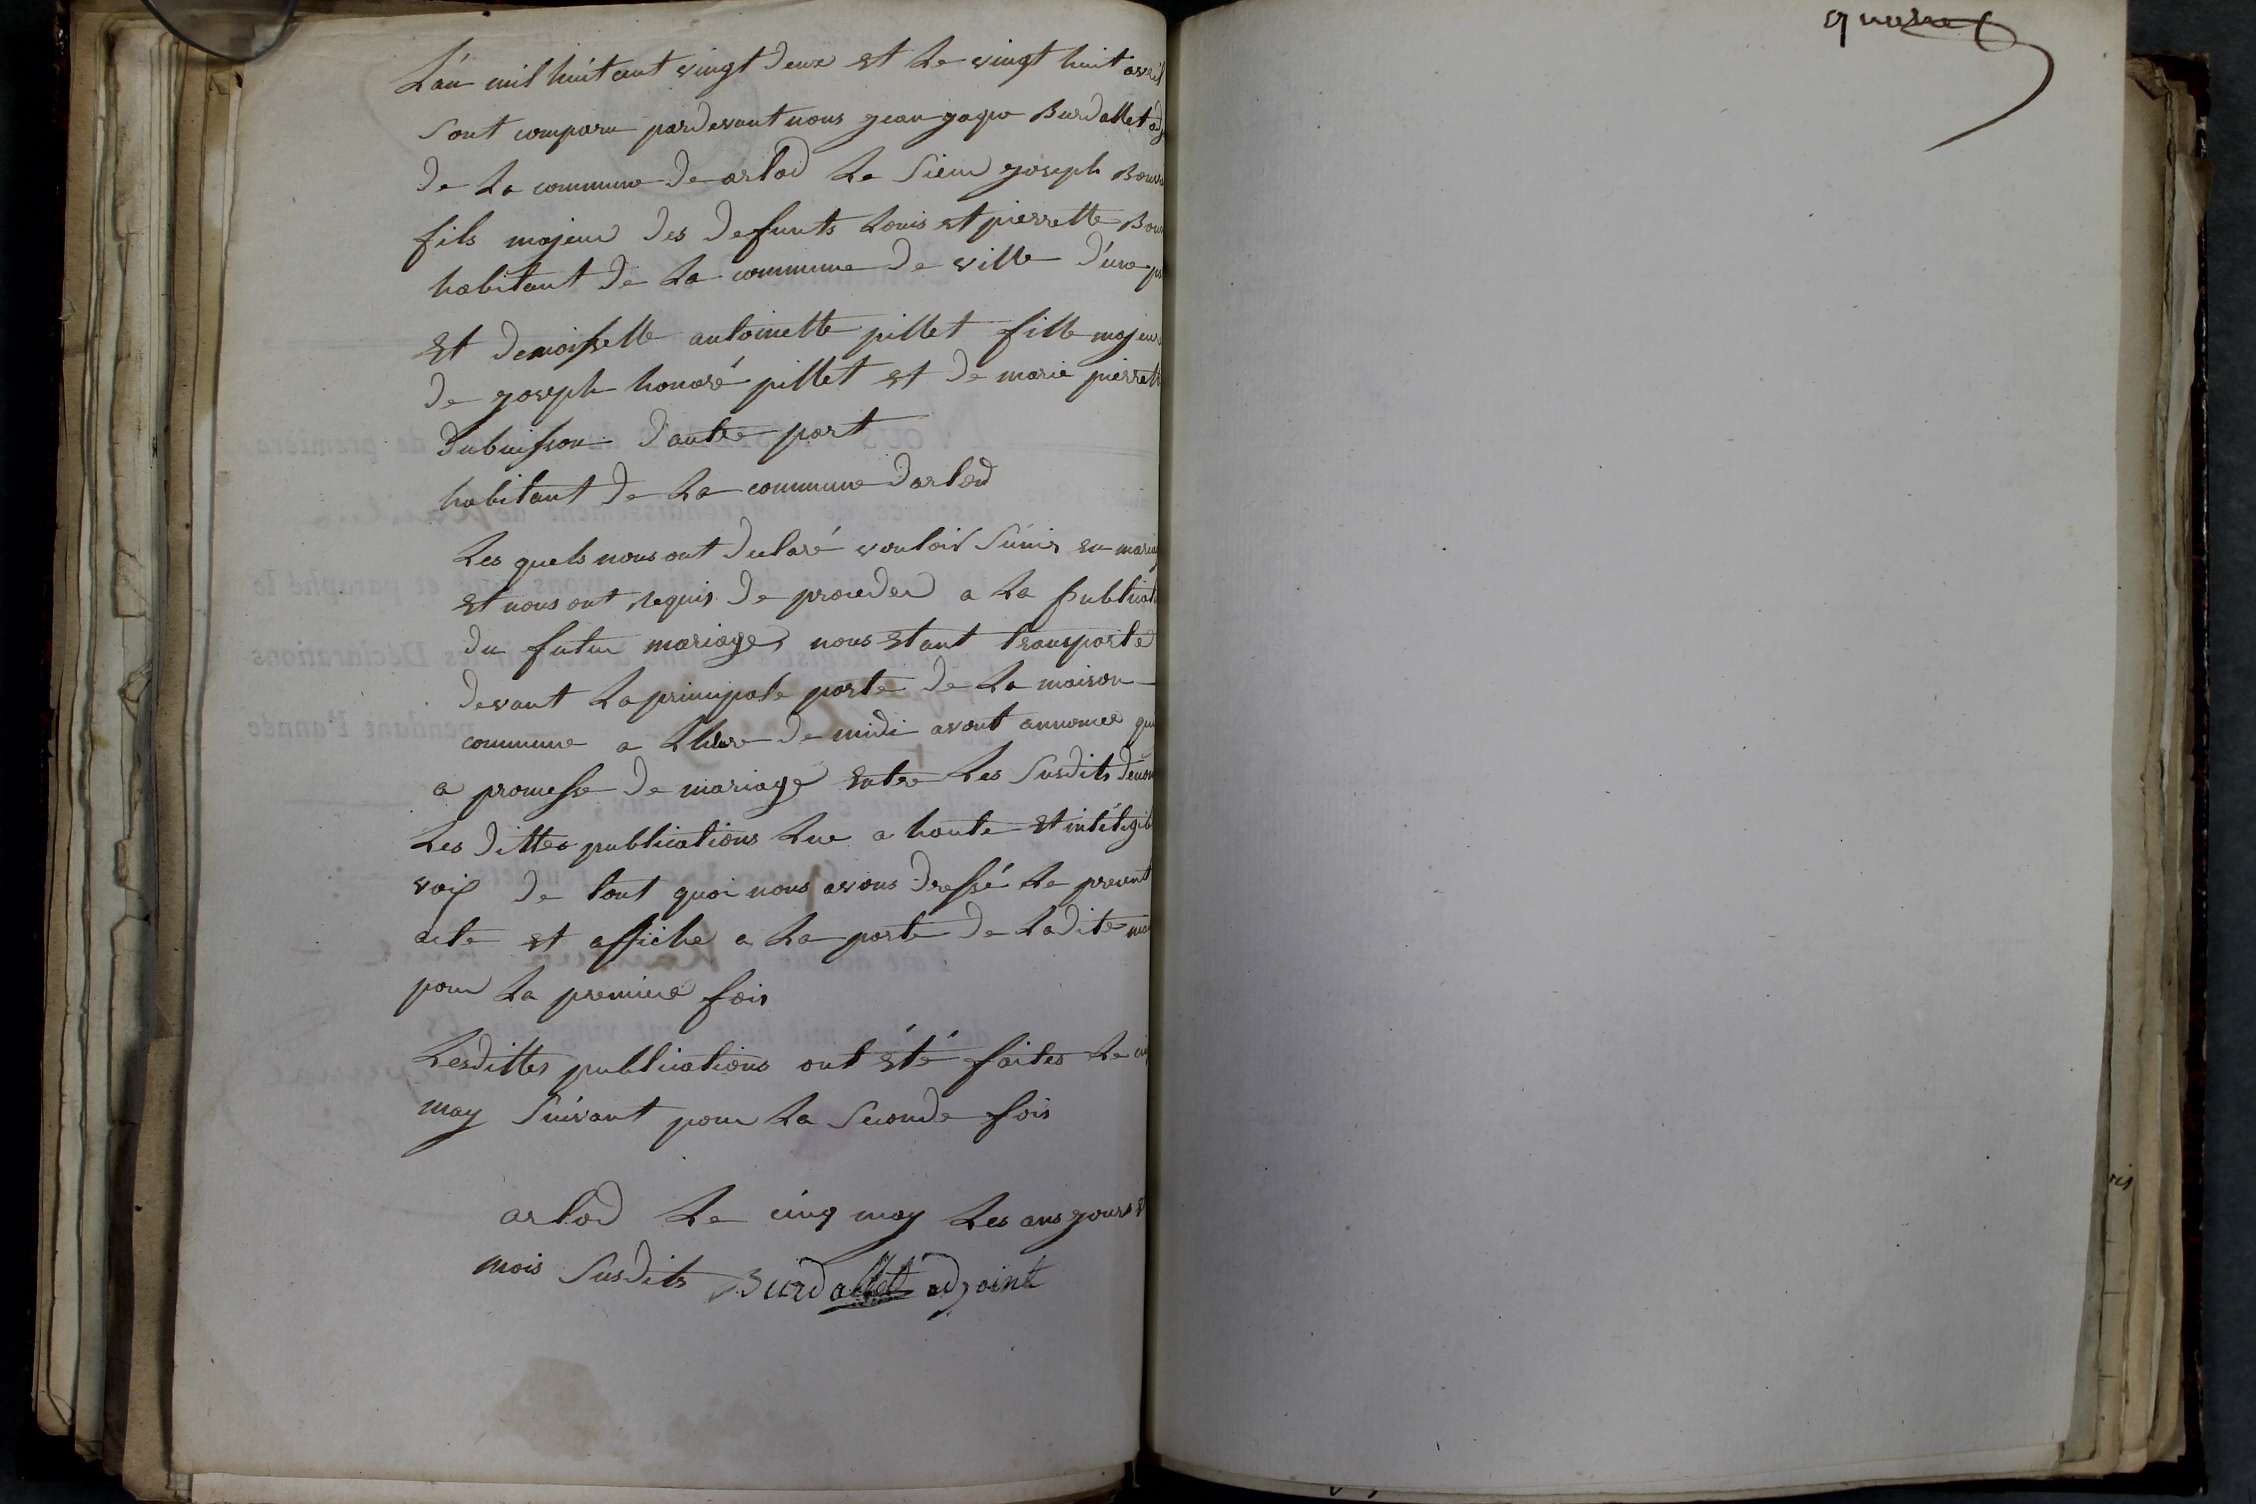 L'an mil huit cent vingt deux et le vingt huit avril
sont comparu pardevant nous jean jaque Burdallet adj
de la commune de arlod le sieur joseph Bouv
fils majeur des defunts Louis et pierrette Bou
habitant de la commune de ville d'une pa
et demoiselle antoinette pillet fille majeur
de joseph honoré pillet et de marie pierrett
dubuisson d'autre part
habitant de la commune d'arlod
Les quels nous ont declaré vouloir s'unir en mariag
et nous ont requis de proceder a la publicati
du futur mariage, nous etant transporté
devant la principale porte de la maison
commune a lheure de midi avont annoncé qu
a promesse de mariage entre les susdits denom
Les dittes publications lue a haute et intéligib
voix de tout quoi nous avons dressé le present
acte et affiche a la porte de ladite mai
pour la premiere fois
Lesdittes publications ont été faites le cin
may suivant pour la seconde fois
arlod le cinq may les ans jours et
mois susdits Burdallet adjoint